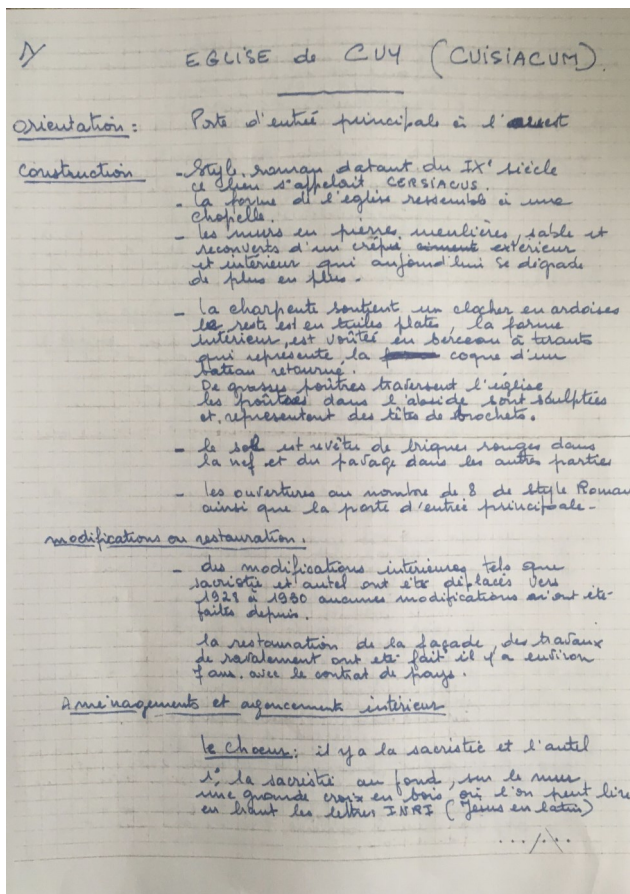 1/
EGLISE de CUY (CUISIACUM).
Orientation : Porte d'entrée principale à l'ouest
Construction - Style roman datant du IXe siècle
ce lieu s'appelait CERSIACUS.
- la forme de l'église ressemble à une
chapelle.
- les murs en pierre meulières, sable et
recouverts d'un crépis ciment extérieur
et intérieur qui aujourd'hui se dégrade
de plus en plus.
- la charpente soutient un clocher en ardoises
le reste est en tuiles plates, la forme
intérieur, est voûtée en berceau à tirants
qui représente la coque d'un
bateau retourné.
De grosses poûtres traversent l'église
les poûtres dans l'abside sont sculptées
et représentent des têtes de brochets.
- le sol est revêtu de briques rouges dans
la nef et du pavage dans les autres parties
- les ouvertures au nombre de 8 de style Roman
ainsi que la porte d'entrée principale -
modifications ou restauration.
- des modifications intérieures, tels que
sacristie et autel ont été déplacés vers
à 1930 aucunes modifications n'ont été
faites depuis.
la restauration de la façade, des travaux
de ravalement ont été fait il y a environ
7 ans. avec le contrat de pays.
Aménagements et agencement intérieur
le Choeur : il y a la sacristie et l'autel
la sacristie au fond, sur le mur
une grande croix en bois où l'on peut lire
en haut les lettres INRI (Jésus en latin)
.../...